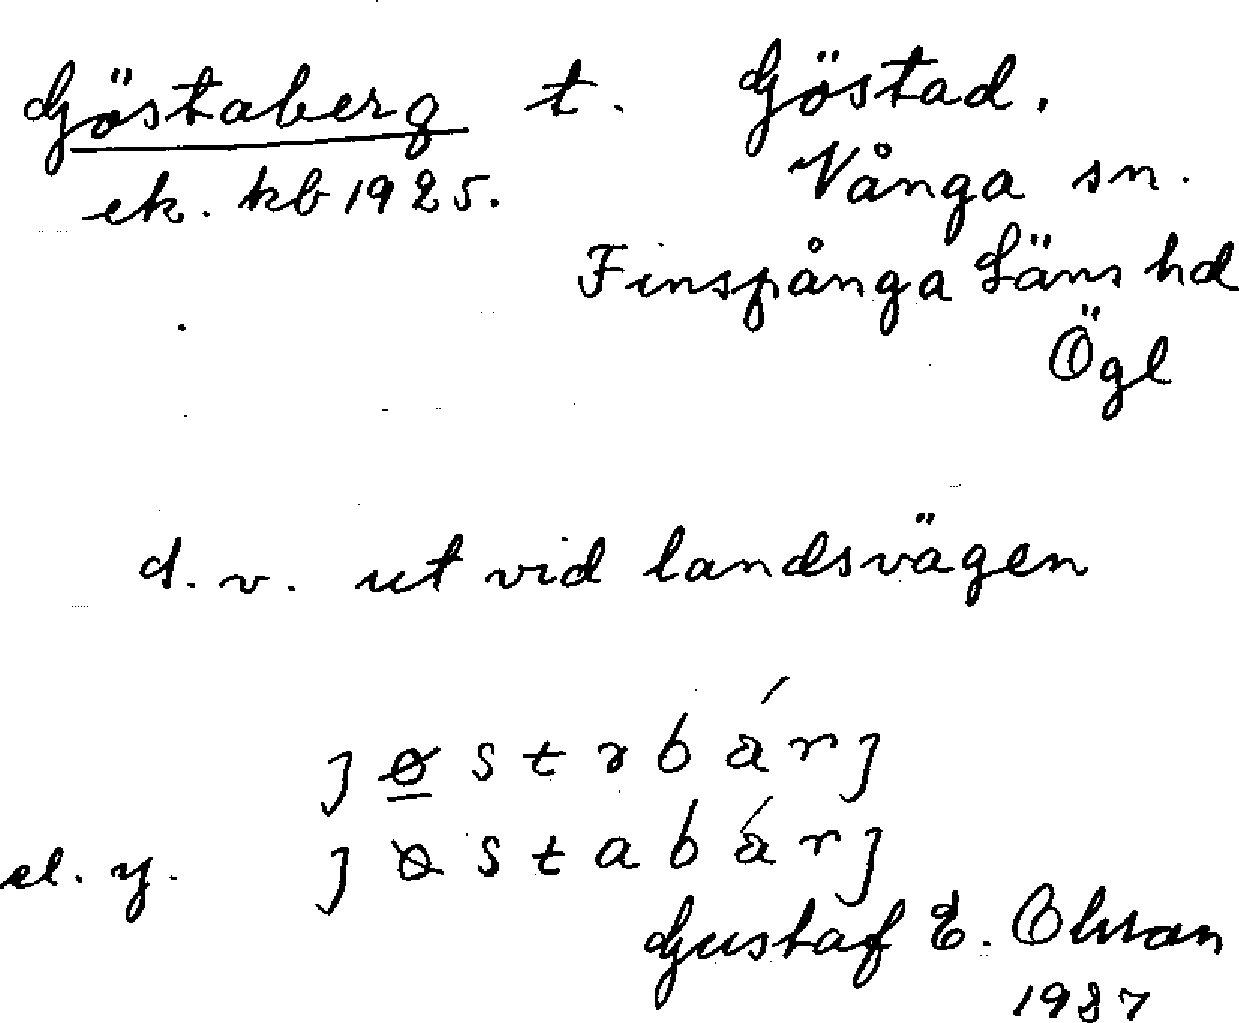 Göstaberg t. Göstad.
ek. kb 1925. Vånga sn.
Finspånga Läns hd
Ögl
d. v. ut vid landsvägen
el. y.
Gustaf E. Olsson
1937